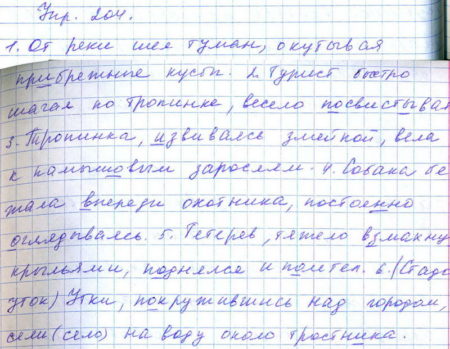 Упр. 204.
1. От реки шел туман, окутывая
прибрежные кусты. 2. Турист быстро
шагал по тропинке, весело посвистывая
3. Тропинка, извиваясь змейкой, вела
к камышовым зарослям. 4. Собака бе-
жала впереди охотника, постоенно
оглядываясь. 5. Тетерев, тяжело взмахну
крыльями, поднялся и полетел. 6. (Стадо
уток) Утки, покружившись над городом,
сели (село) на воду около тростника.